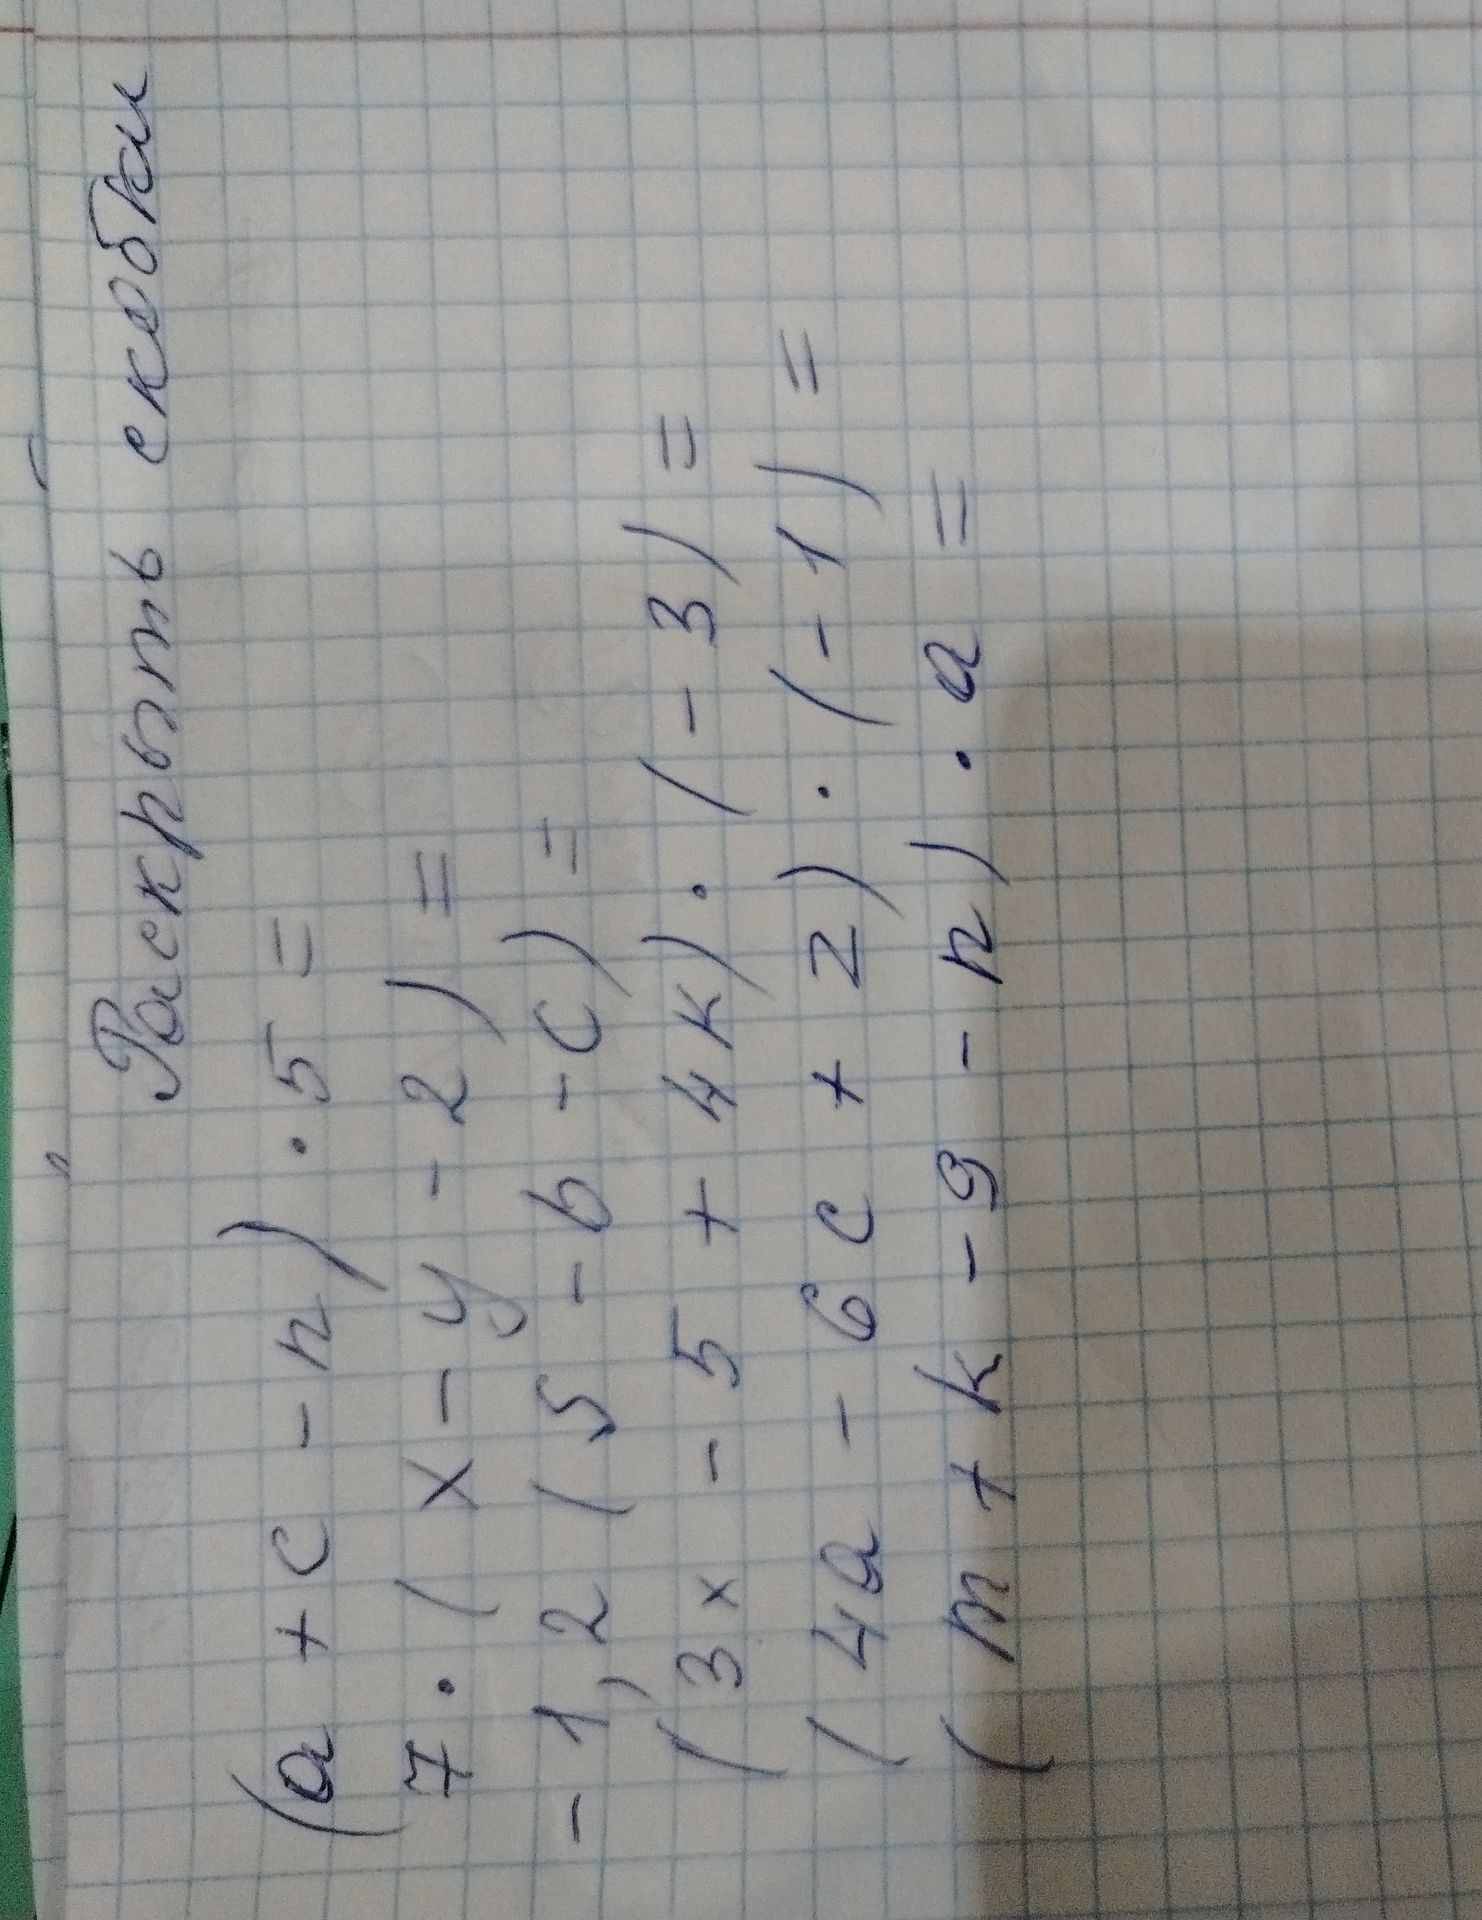 Раскрыть скобки
(a + c - n) · 5 =
7 · (x - y - 2) =
-1,2 (5 - b - c) =
(3x - 5 + 4к) · (-3) =
(4a - 6c + 2) · (-1) =
(m + k - 9 - n) · a =